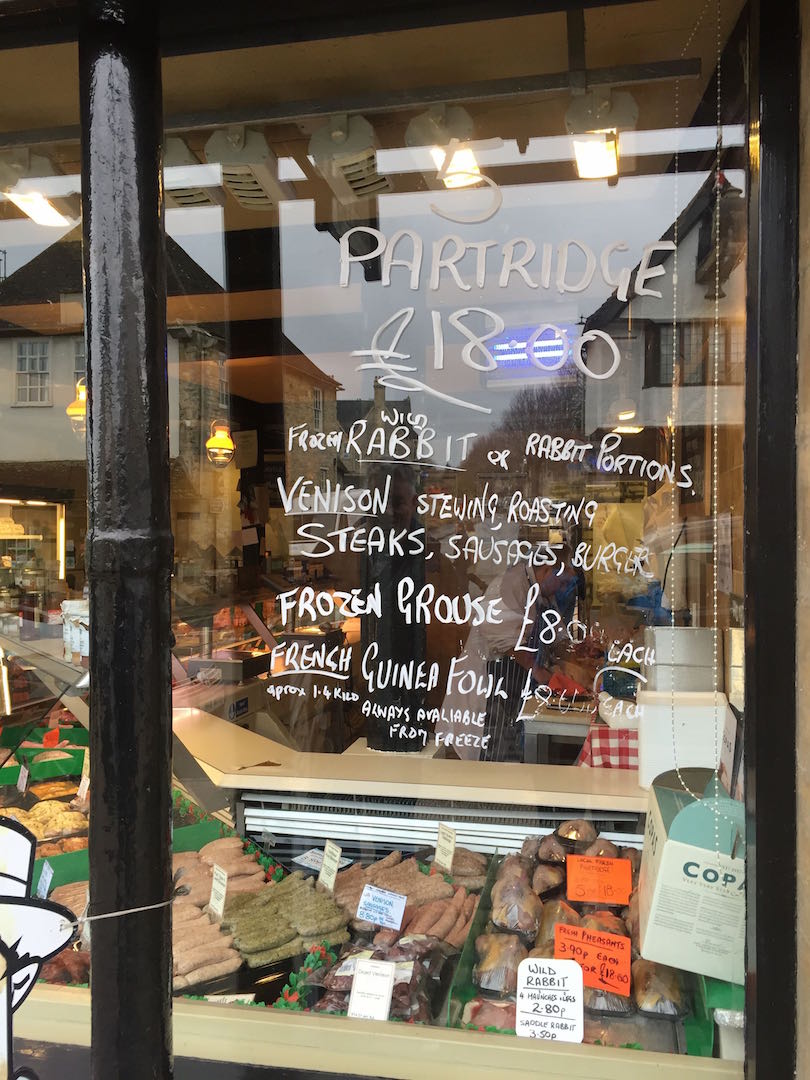 5
PARTRIDGE
£18.00
WILD
FROZEN RABBIT OR RABBIT PORTIONS.
VENISON STEWING, ROASTING
STEAKS, SAUSAGES, BURGER
FROZEN GROUSE £8.0 EACH
FRENCH GUINEA FOWL £8.00 EACH
aprox 1.4 KILO
ALWAYS AVALIABLE
FROM FREEZE
VENISON
SAUSAGES
8.80p
LOCAL FRESH
PARTRIDGE
5 FOR £18
FRESH PHEASANTS
3.90p EACH
FOR £18.00
WILD
RABBIT
4 HAUNCHES LEGS
2.80p
SADDLE RABBIT
3.50p
Diced Venison
COPA